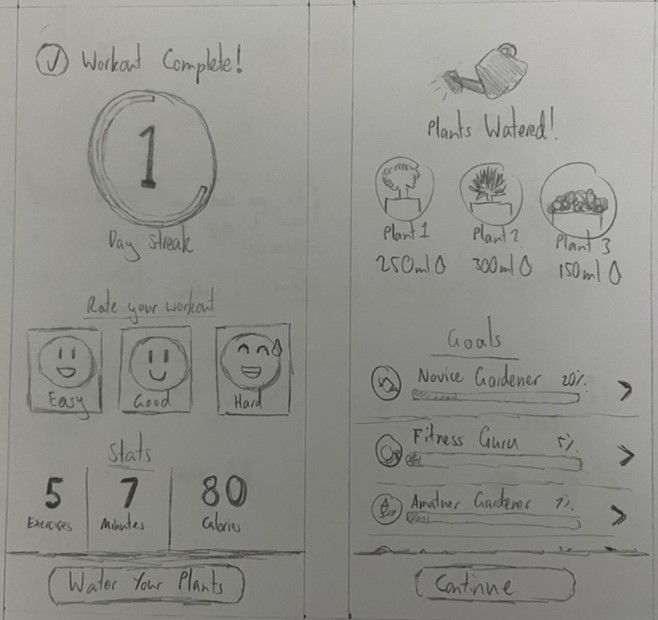 Workout Complete!
1
Day Streak
Rate your workout
Easy Good Hard
Stats
5 7 80
Exercises Minutes Calories
Water Your Plants
Plants Watered!
Plant 1 Plant 2 Plant 3
250ml 300ml 150ml
Goals
Novice Gardener 20%
Fitness Guru 5%
Amatuer Gardener 7%
Continue